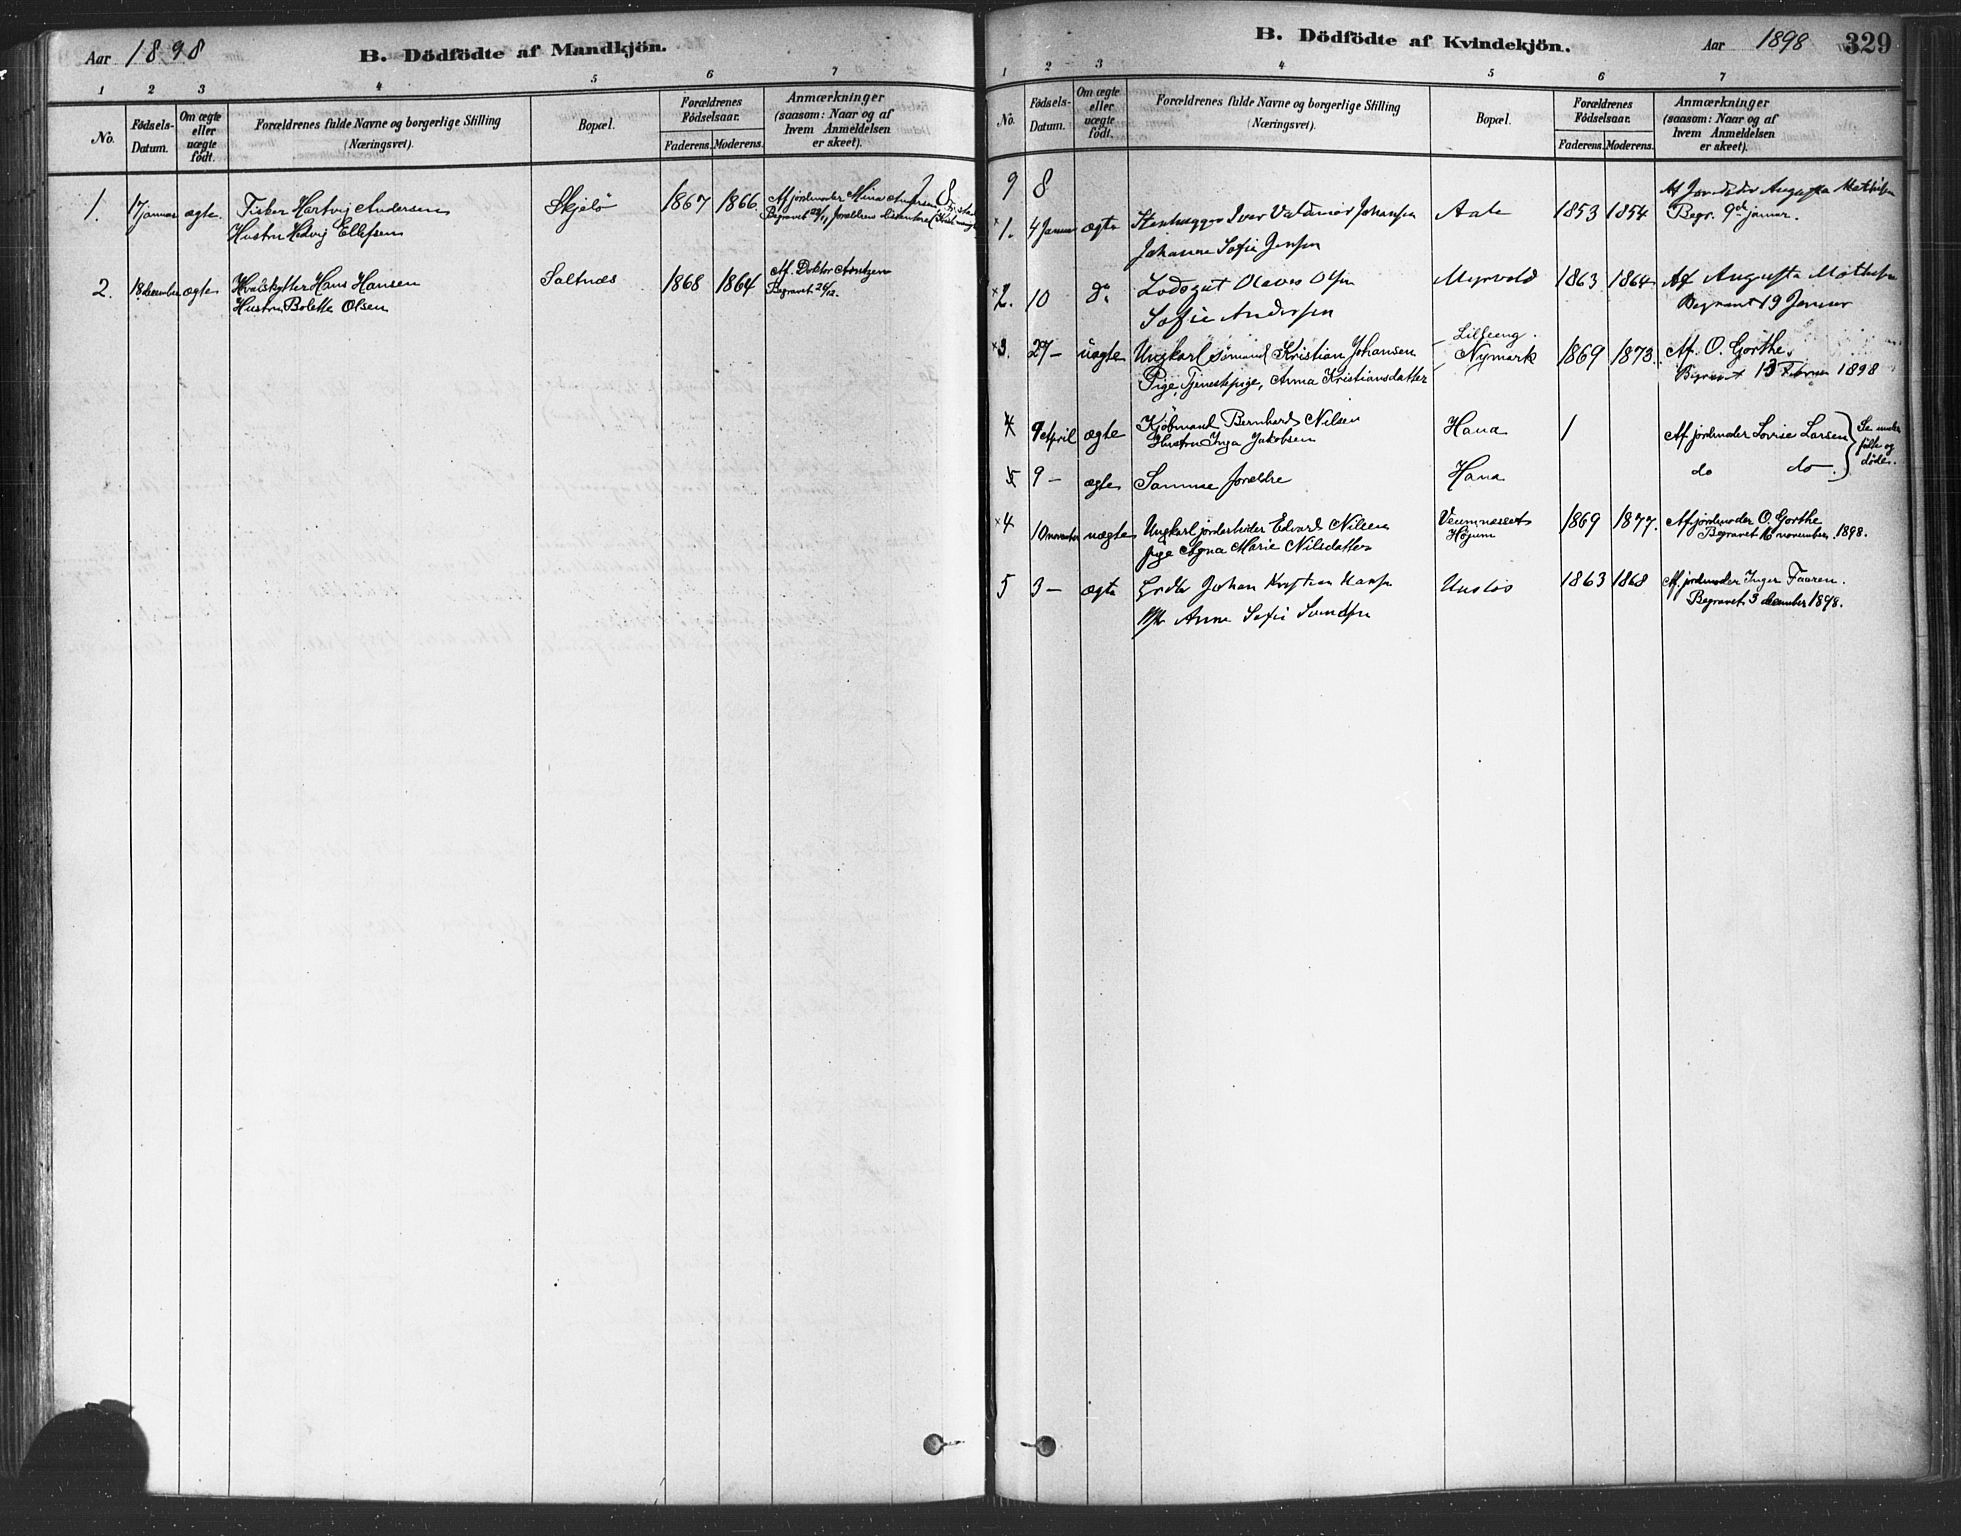 Aar 1898
B. Dödfödte af Mandkjön.
1 2 3 4 5 6 7
No.
Födsels-Datum.
Om ægte eller uægte födt.
Forældrenes fulde Navne og borgerlige Stilling
(Næringsvei).
Bopæl.
Forældrenes Födselsaar.
Faderens. Moderens.
Anmærkninger
(saasom: Naar og af
hvem Anmeldelsen
er skeet).
1. 17 januar ægte. Fisker Hartvig Andersen Skjelö 1867 1866 Af jordmoder Mina
Hustru Hedvig Ellefsen Begravet Forældrene dissentere
2. 18 december ægte Hvalskytter Hans Hansen Saltnæs 1868 1864 Af Doktor Arntzen
Hustru Bolette Olsen Begravet 26/12.
B. Dödfödte af Kvindekjön.
Aar 1898 329
1 2 3 4 5 6 7
No.
Födsels-Datum.
Om ægte eller uægte födt.
Forældrenes fulde Navne og borgerlige Stilling
(Næringsvei).
Bopæl.
Forældrenes Födselsaar.
Faderens. Moderens.
Anmærkninger
(saasom: Naar og af
hvem Anmeldelsen
er skeet).
9 8
×1. 4 Januar ægte Stenhugger Iver Valdemar Johansen Aale 1853 1854 Af Augusta Mathisen
Johanne Sofie Jensen Begr. 9de januar.
×2. 10 do Lodsgut Olaves Olsen Myrvold 1863 1864 Af Augusta Mathisen
Sofie Andersen Begravet 19 Januar
×3. 27 – uægte Ungkarl sömand Kristian Johansen Lilleeng Nymark 1869 1873. Af O. Gorthe.
Pige, Tjenestepige, Anna Kristiansdatter Begravet 13 Februar 1898
4 9 April ægte Kjöbmand Bernhard Nilsen Hana / Af jordmoder Lovise Larsen Se under födte og döde.
Hustru Inga Jakobsen
5 9 – ægte Samme forældre Hana do do
×4 10 november uægte Ungkarl jordarbeider Edvard Nilsen 1869 1877. Af jordmoder O. Gorthe
pige Agna Marie Nilsdatter Begravet 16 november 1898.
5 3 – ægte Johan Kristian Hansen 1863 1868 Af jordmoder Inger Faaren.
Anne Sofie Svendsen Begravet 3 december 1898.